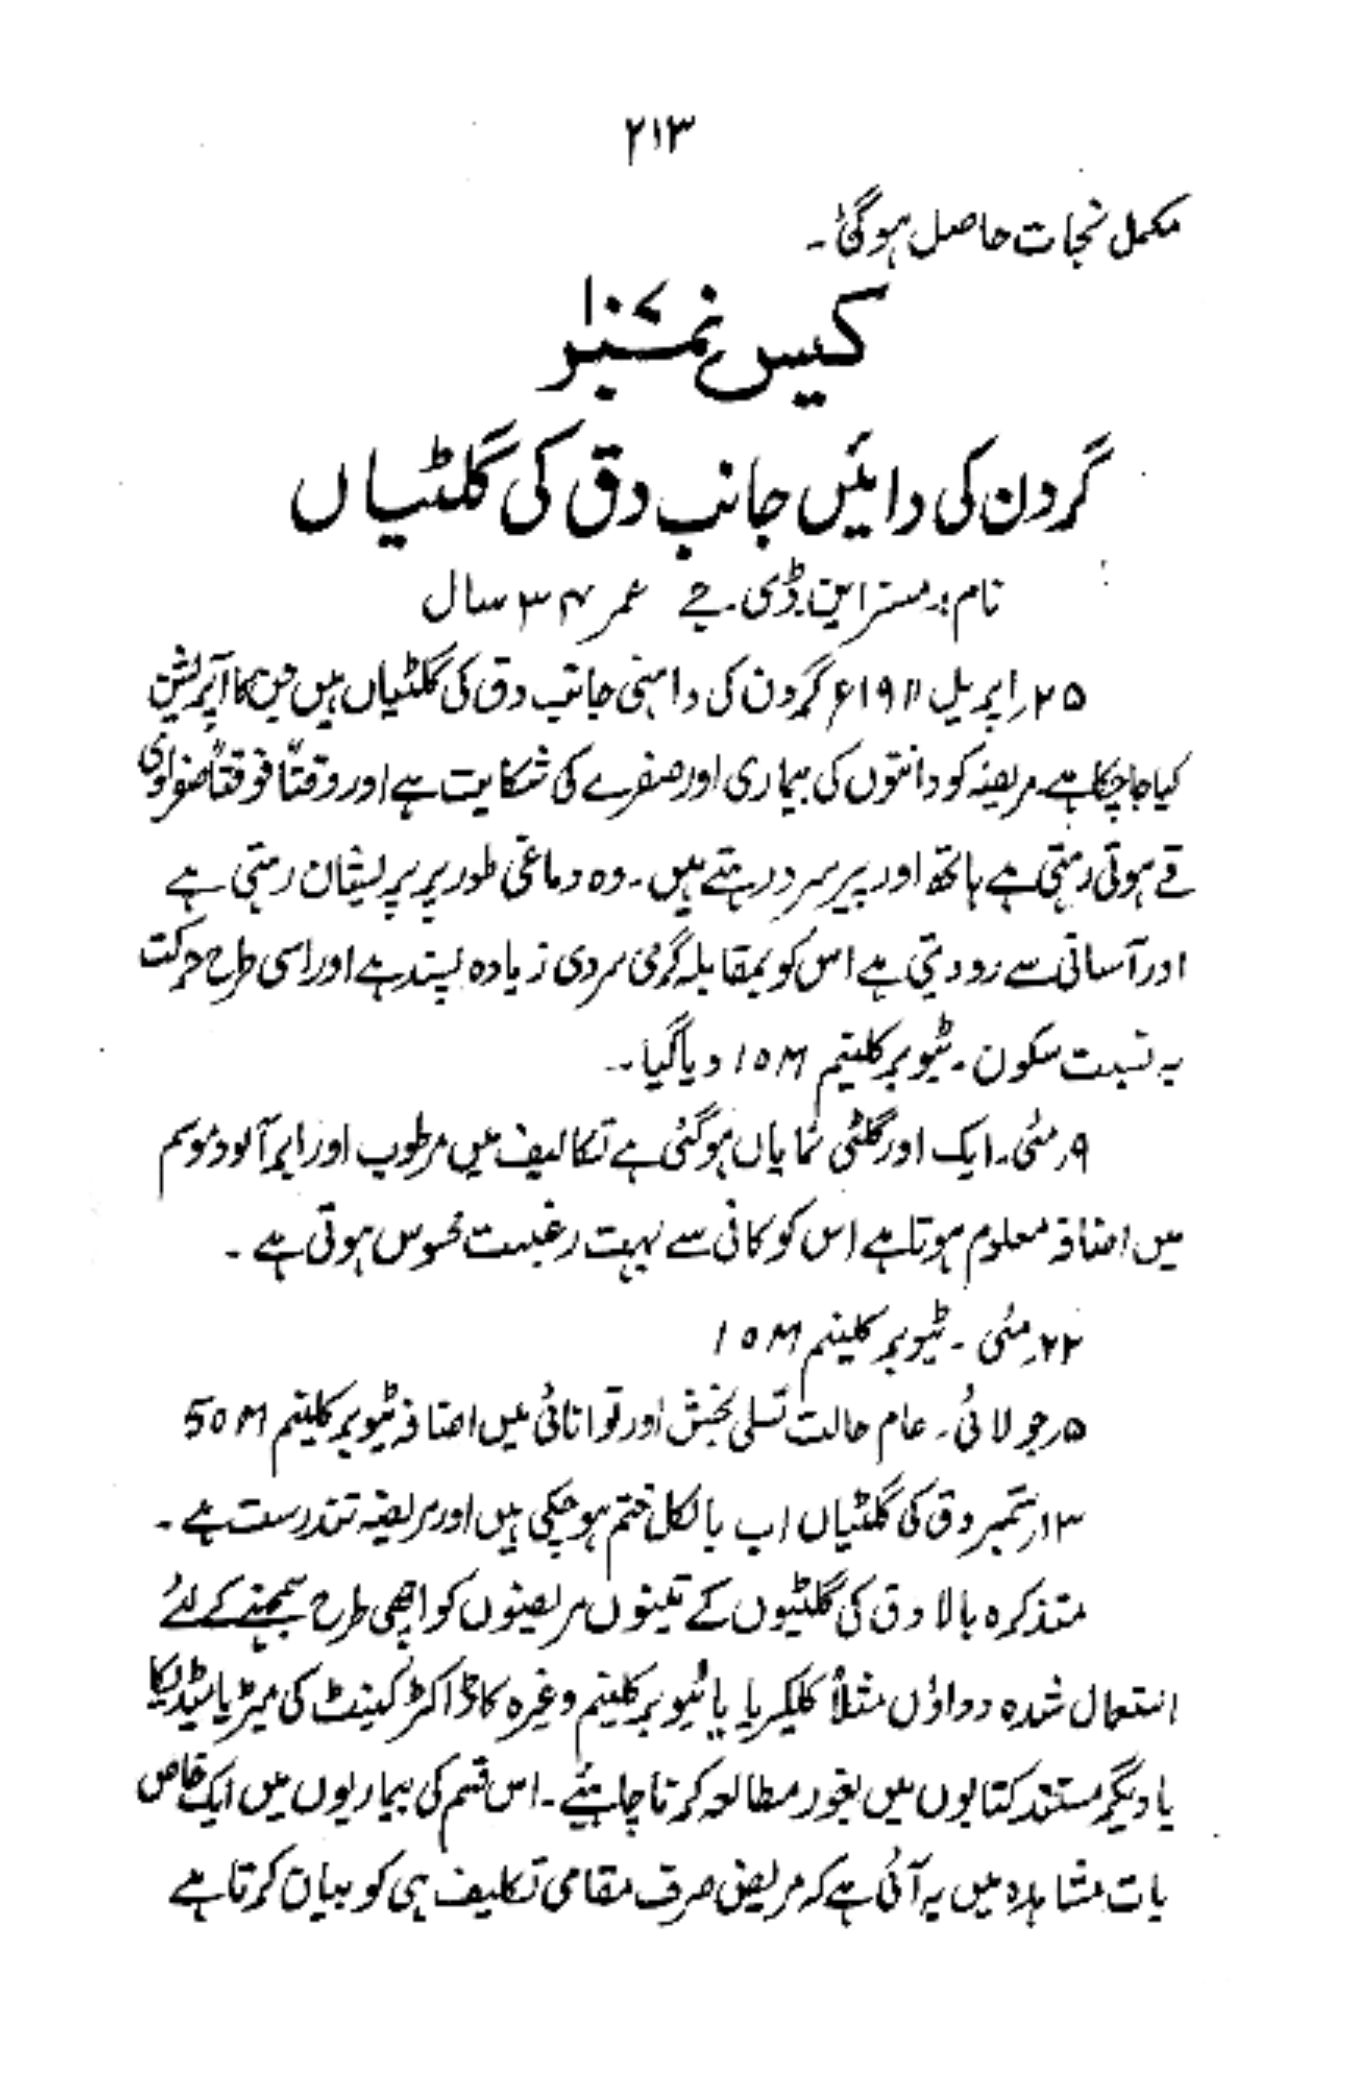 ۲۱۳
مکمل نجات حاصل ہوگئی۔
کیس نمبر ۱۰۷
گردن کی دائیں جانب دق کی گلٹیاں
نام :۔ مسز این۔ ڈی۔ جے عمر ۳۴ سال
۲۵؍اپریل ۱۹۱۱ء گردن کی داہنی جانب دق کی گلٹیاں ہیں جن کا آپریشن
کیا جا چکا ہے۔ مریضہ کو دانتوں کی بیماری اور صفرے کی شکایت ہے اور وقتاً فوقتاً صفراوی
قے ہوتی رہتی ہے ہاتھ اور پیر سرد رہتے ہیں۔ وہ دماغی طور پر پریشان رہتی ہے
اور آسانی سے رو دیتی ہے اس کو بمقابلہ گرمی سردی زیادہ پسند ہے اور اسی طرح حرکت
بہ نسبت سکون۔ ٹیوبرکلینم 10M دیا گیا۔
۹؍مئی۔ ایک اور گلٹی نمایاں ہوگئی ہے تکالیف میں مرطوب اور ابر آلود موسم
میں اضافہ معلوم ہوتا ہے اس کو کافی سے بہت رغبت محسوس ہوتی ہے۔
۲۲؍مئی۔ ٹیوبرکلینم 10M
۵؍جولائی۔ عام حالت تسلی بخش اور توانائی میں اضافہ ٹیوبرکلینم 50M
۱۳؍ستمبر دق کی گلٹیاں اب بالکل ختم ہو چکی ہیں اور مریضہ تندرست ہے۔
متذکرہ بالا دق کی گلٹیوں کے تینوں مریضوں کو اچھی طرح سمجھنے کے لئے
استعمال شدہ دواؤں مثلاً کلکیریا یا ٹیوبرکلینم وغیرہ کا ڈاکٹر کینٹ کی میٹریا میڈیکا
یا دیگر مستند کتابوں میں بغور مطالعہ کرنا چاہئیے۔ اس قسم کی بیماریوں میں ایک خاص
بات مشاہدہ میں یہ آئی ہے کہ مریض صرف مقامی تکلیف ہی کو بیان کرتا ہے